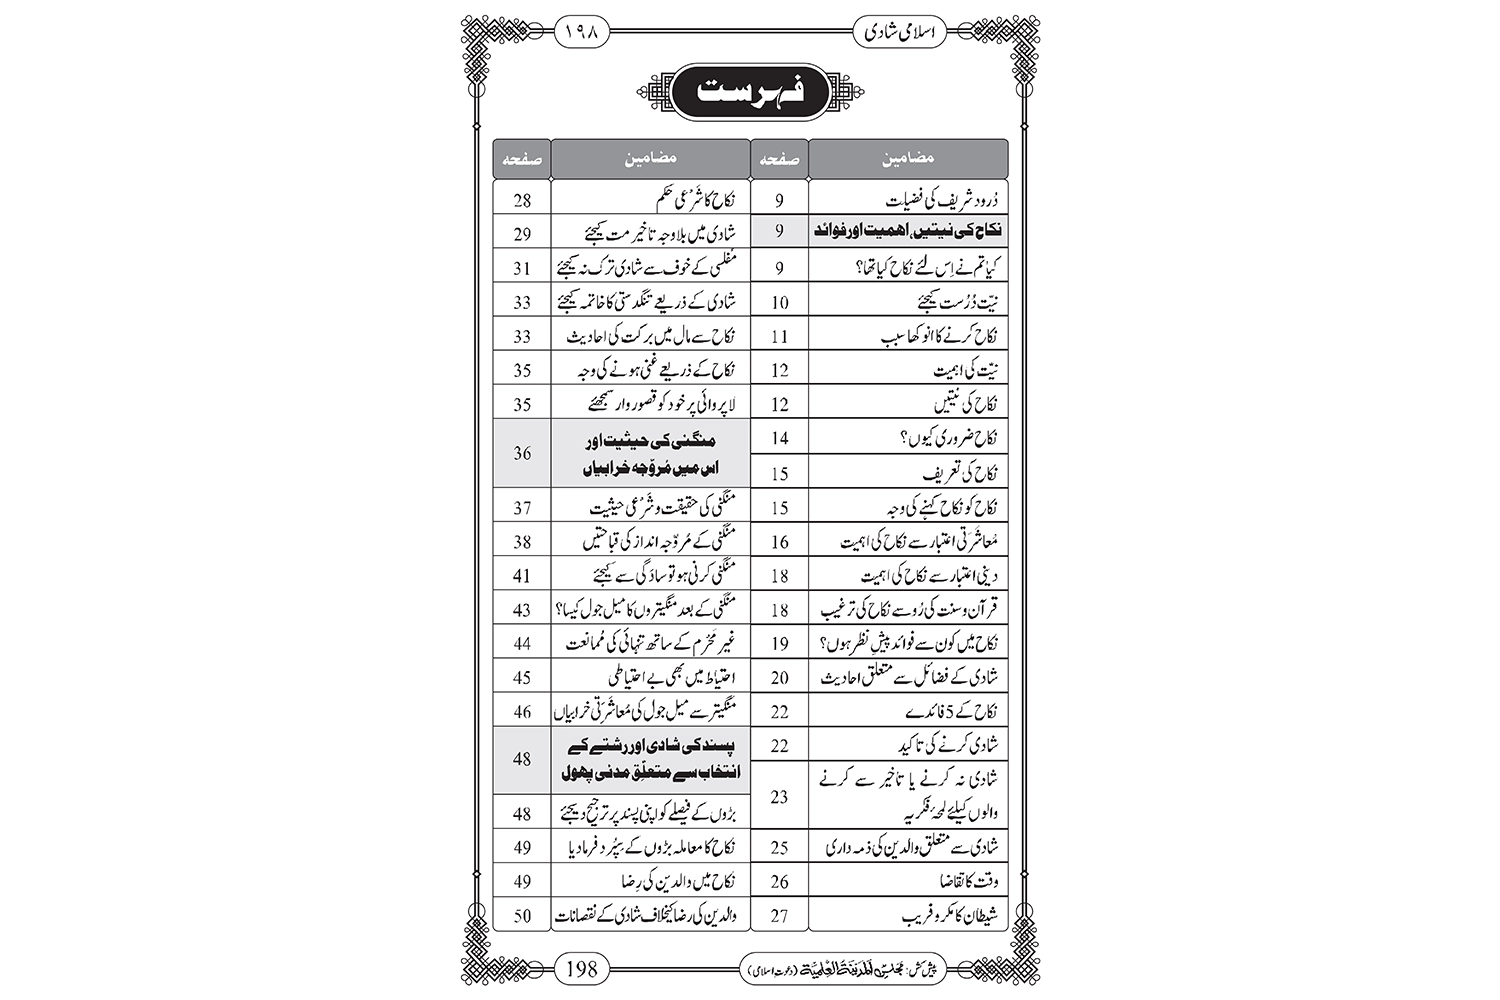 اسلامی شادی
۱۹۸
فہرست
مضامین صفحہ
دُرود شریف کی فضیلت 9
نکاح کی نیتیں، اہمیت اور فوائد 9
کیا تم نے اِس لئے نکاح کیا تھا؟ 9
نیّت دُرُست کیجئے 10
نکاح کرنے کا انوکھا سبب 11
نیّت کی اہمیت 12
نکاح کی نیتیں 12
نکاح ضروری کیوں؟ 14
نکاح کی تعریف 15
نکاح کو نکاح کہنے کی وجہ 15
مُعاشَرَتی اعتبار سے نکاح کی اہمیت 16
دینی اعتبار سے نکاح کی اہمیت 18
قرآن و سنت کی رُو سے نکاح کی ترغیب 18
نکاح میں کون سے فوائد پیشِ نظر ہوں؟ 19
شادی کے فضائل سے متعلق احادیث 20
نکاح کے 5 فائدے 22
شادی کرنے کی تاکید 22
شادی نہ کرنے یا تاخیر سے کرنے
والوں کیلئے لمحۂ فکریہ 23
شادی سے متعلق والدین کی ذمہ داری 25
وقت کا تقاضا 26
شیطان کا مکر و فریب 27
مضامین صفحہ
نکاح کا شَرْعی حکم 28
شادی میں بلاوجہ تاخیر مت کیجئے 29
مُفلسی کے خوف سے شادی ترک نہ کیجئے 31
شادی کے ذریعے تنگدستی کا خاتمہ کیجئے 33
نکاح سے مال میں برکت کی احادیث 33
نکاح کے ذریعے غنی ہونے کی وجہ 35
لاپروائی پر خود کو قصور وار سمجھئے 35
منگنی کی حیثیت اور
اس میں مُروّجہ خرابیاں 36
منگنی کی حقیقت و شَرْعی حیثیت 37
منگنی کے مُروّجہ انداز کی قباحتیں 38
منگنی کرنی ہو تو سادَگی سے کیجئے 41
منگنی کے بعد منگیتروں کا میل جول کیسا؟ 43
غیر مَحْرَم کے ساتھ تنہائی کی مُمانعت 44
احتیاط میں بھی بے احتیاطی 45
منگیتر سے میل جول کی مُعاشَرَتی خرابیاں 46
پسند کی شادی اور رشتے کے
انتخاب سے متعلّق مدنی پھول 48
بڑوں کے فیصلے کو اپنی پسند پر ترجیح دیجئے 48
نکاح کا معاملہ بڑوں کے سِپُرد فرما دیا 49
نکاح میں والدین کی رِضا 49
والدین کی رضا کیخلاف شادی کے نقصانات 50
پیش کش: مجلس المدینۃ العلمیۃ (دعوت اسلامی)
198